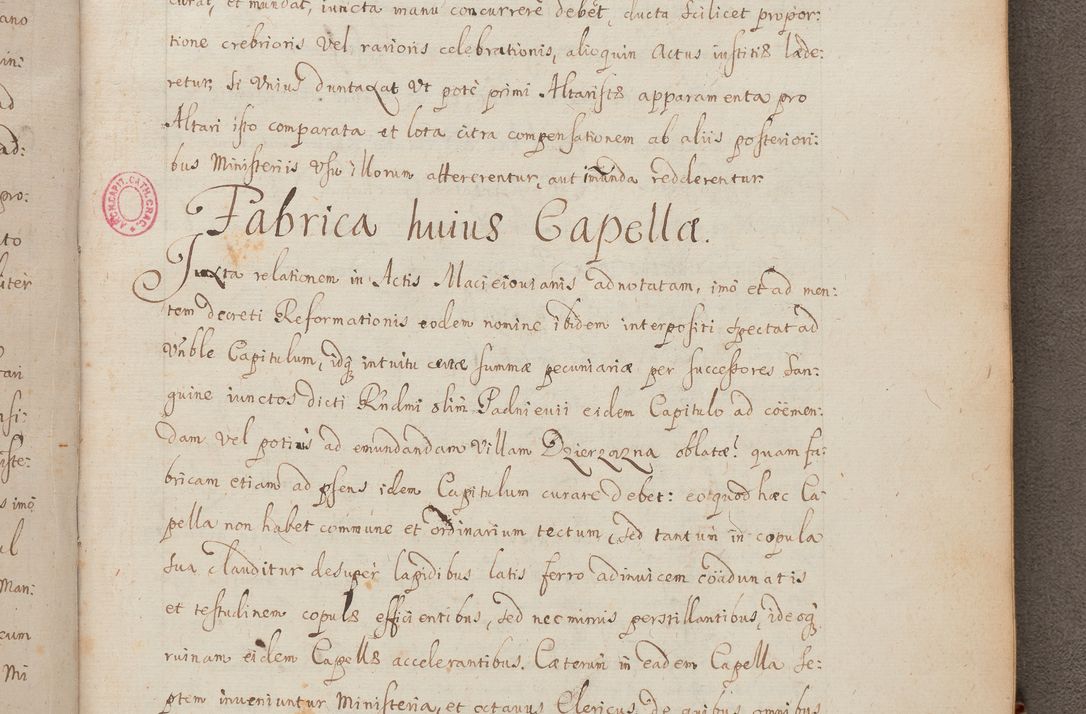 curat, et mundat, iuncta manu concurrere debet, ducta scilicet propor:
tione crebrioris vel rarioris celebrationis, alioquin Actus iustitiæ læde:
retur, si unius duntaxat ut pote primi Altaristæ apparamenta pro
Altari isto comparata et lota citra compensationem ab aliis posteriori:
bus Ministeriis usu illorum attererentur, aut imunda redderentur.
Fabrica huius Capellæ.
Juxta relationem in Actis Macieiovianis adnotatam, imò et ad men:
tem decreti Reformationis eodem nomine ibidem interpositi spectat ad
Vnble Capitulum, idq; intuitu certæ summæ pecuniariæ per successores san:
guine iunctos dicti Rndmi olim Padnievii eidem Capitulo ad coëmen:
dam vel potius ad emundandam villam Dzierzazna oblatæ: quam fa:
bricam etiam ad psens idem Capitulum curare debet: eo quod hæc Ca-
pella non habet commune et ordinarium tectum, sed tantum in copula
sua clauditur desuper lapidibus latis ferro adinvicem coadunatis
et testudinem copulæ efficientibus, sed nec minus perstillantibus, ideoq;
ruinam eidem Capellæ accelerantibus. Cæterum in eadem Capella se:
ptem inveniuntur Ministeria, et octavus Clericus, de quibus omnibus
ARCH. CAPIT. CATH. CRAC.
ano
ad
ad:
pro:
to
rari
nsi:
iste:
s imò
ul
Man:
cum
Mi